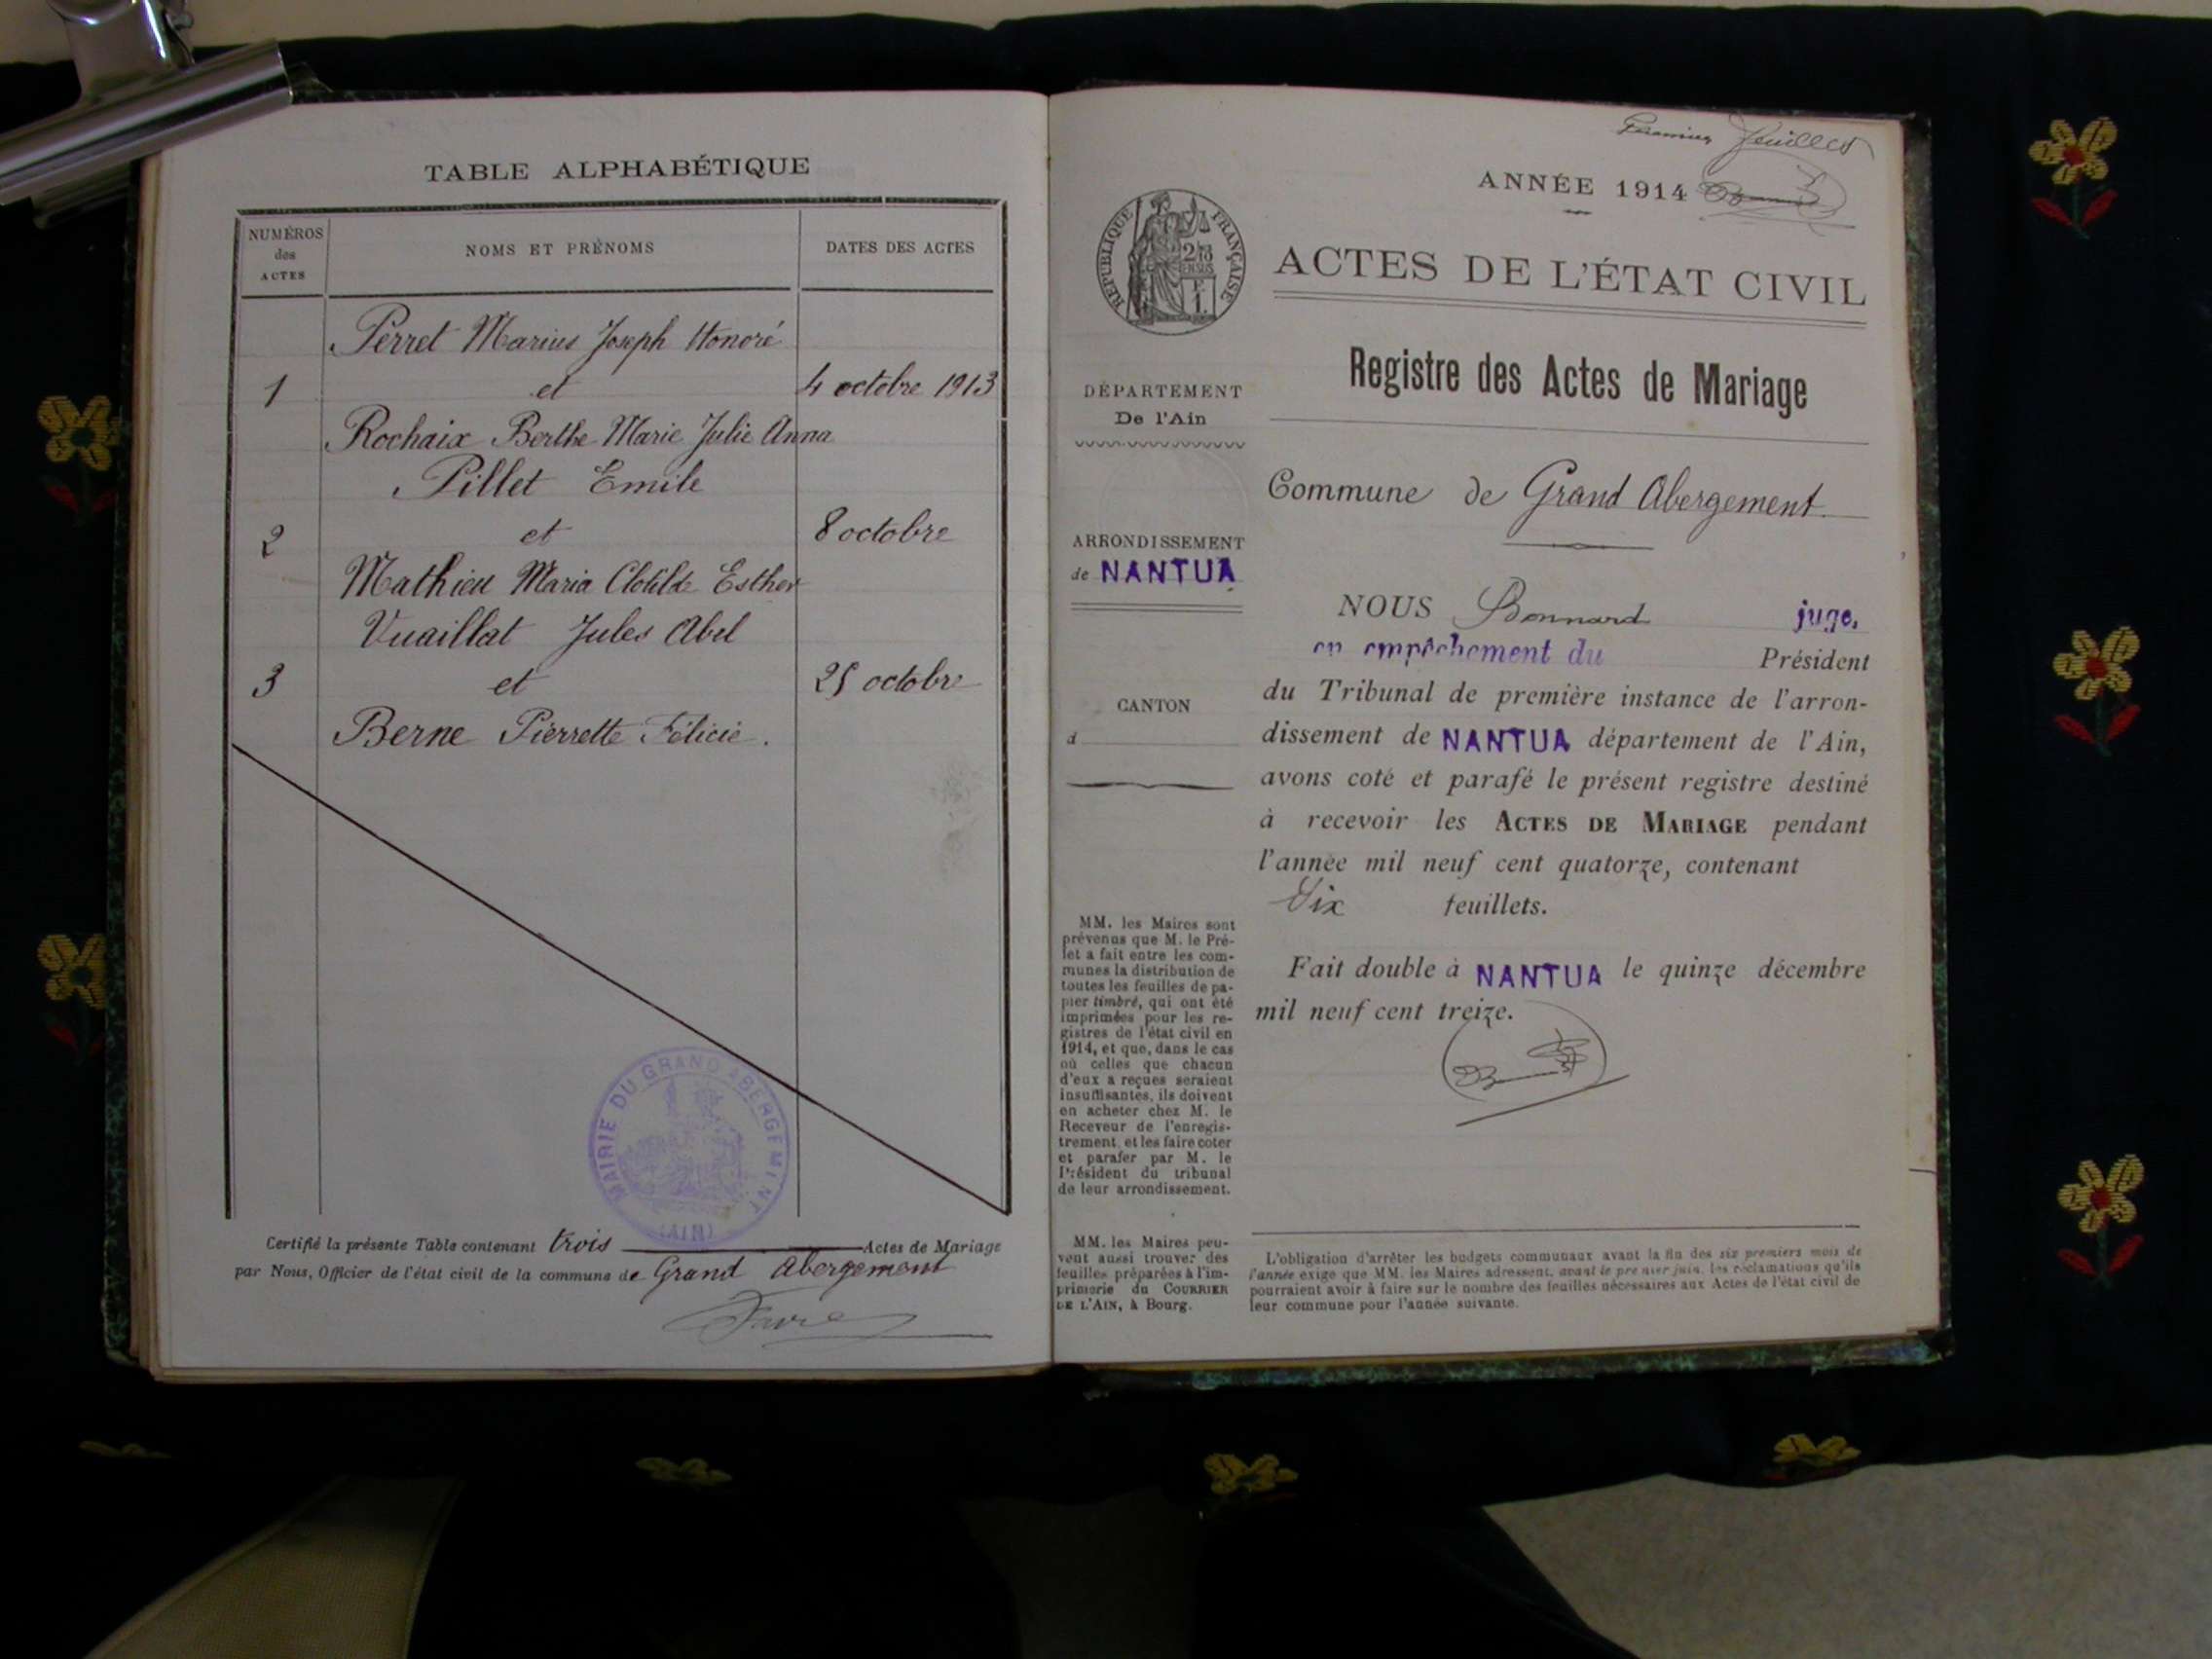 TABLE ALPHABÉTIQUE
NUMÉROS
des
ACTES
NOMS ET PRÉNOMS
DATES DES ACTES
Perret Marius Joseph Honoré
1 et 4 octobre 1913
Rochaix Berthe Marie Julie Anna
Pillet Emile
2 et 8 octobre
Mathieu Maria Clotilde Esther
Vuaillat Jules Abel
3 et 25 octobre
Berne Pierrette Félicie.
MAIRIE DU GRAND ABERGEMENT
(AIN)
Certifié la présente Table contenant trois Actes de Mariage
par Nous, Officier de l'état civil de la commune de Grand Abergement
Favre
Premier feuillet
ANNÉE 1914
RÉPUBLIQUE FRANÇAISE
ACTES DE L'ÉTAT CIVIL
Registre des Actes de Mariage
DÉPARTEMENT
De l'Ain
Commune de Grand Abergement
ARRONDISSEMENT
de NANTUA
CANTON
d
MM. les Maires sont
prévenus que M. le Pré-
fet a fait entre les com-
munes la distribution de
toutes les feuilles de pa-
pier timbré, qui ont été
imprimées pour les re-
gistres de l'état civil en
1914, et que, dans le cas
où celles que chacun
d'eux a reçues seraient
insuffisantes, ils doivent
en acheter chez M. le
Receveur de l'enregis-
trement et les faire coter
et parafer par M. le
Président du tribunal
de leur arrondissement.
MM. les Maires peu-
vent aussi trouver des
feuilles préparées à l'im-
primerie du COURRIER
DE L'AIN, à Bourg.
NOUS Bonnard juge,
en empêchement du Président
du Tribunal de première instance de l'arron-
dissement de NANTUA département de l'Ain,
avons coté et parafé le présent registre destiné
à recevoir les ACTES DE MARIAGE pendant
l'année mil neuf cent quatorze, contenant
Six feuillets.
Fait double à NANTUA le quinze décembre
mil neuf cent treize.
L'obligation d'arrêter les budgets communaux avant la fin des six premiers mois de
l'année exige que MM. les Maires adressent, avant le premier juin, les réclamations qu'ils
pourraient avoir à faire sur le nombre des feuilles nécessaires aux Actes de l'état civil de
leur commune pour l'année suivante.